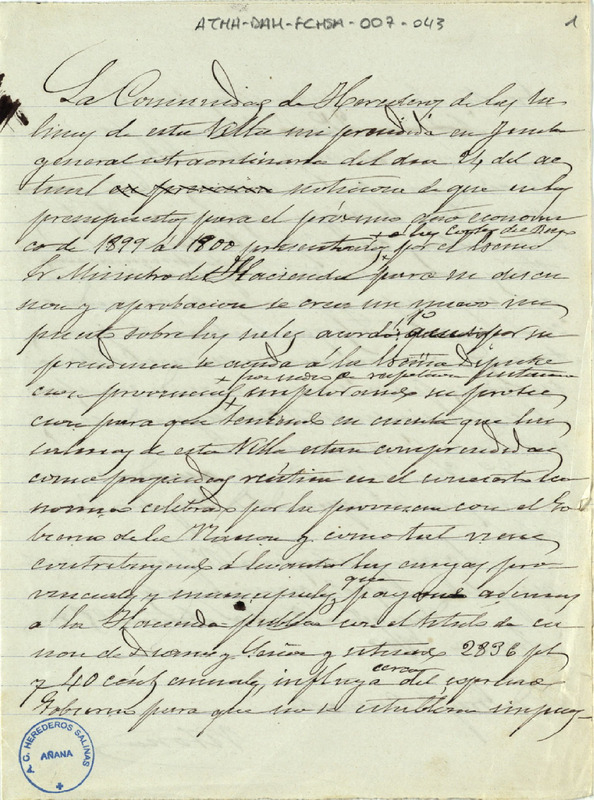 ATHA-DAH-FCHSA-007-043
1
La Comunidad de Herederos de las Sa
linas de esta Villa mi presidida en Junta
general extraordinaria del dia 24 del ac
tual en noticiosa de que en los
presupuestos para el próximo año economi
co de 1899 a 1900 presentados a las Cortes de por el Excmo
Sr Ministro de Hacienda para su discu
sion y aprobacion se crea un nuevo im
puesto sobre las sales acordó que por su
presidencia se acuda á la Excma Diputa
cion provincial por medio de respetuosa instancia implorando su protec
cion para que teniendo en cuenta que las
salinas de esta Villa estan comprendidas
como propiedad rústica en el concierto eco
nomico celebrado por la provincia con el Go
bierno de la Nacion y como tal viene
contribuyendo á levantar las cargas pro
vinciales y municipales, que pagando ademas
á la Hacienda publica con el titulo de ca
non de Diezmo y 2836 pts
y 40 cents anuales, influya cerca del espresado
Gobierno para que no se establezca impues-
A. C. HEREDEROS SALINAS
AÑANA